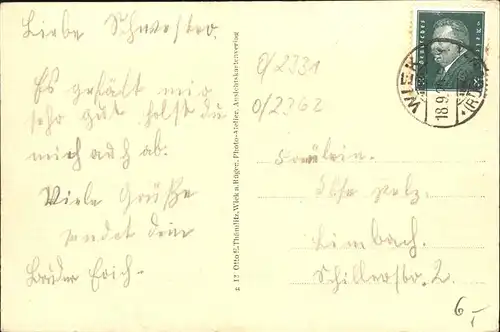 Liebe Schwester.
Es gefält mir
sehr gut holst du
mich auch ab.
Viele Grüße
sendet dein
Bruder Erich.
g 17 Otto E. Thümlitz, Wiek a. Rügen, Photo-Atelier, Ansichtskartenverlag
O/2331
O/2362
WIEK
18.9.
(RÜGEN)
Fräulein.
Ilse
Limbach.
Schillerstr. 2.
6,-